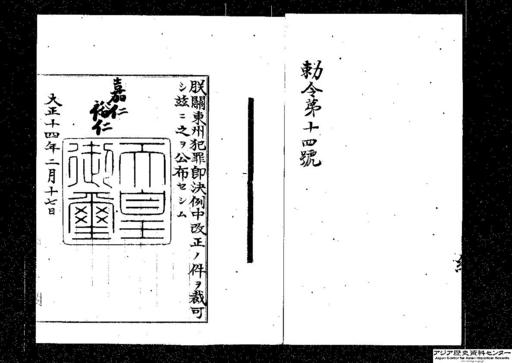 勅令第十四號
朕關東州犯罪即決例中改正ノ件ヲ裁可
シ玆ニ之ヲ公布セシム
嘉仁
裕仁
天皇御璽
大正十四年二月十七日
アジア歴史資料センター
Japan Center for Asian Historical Records